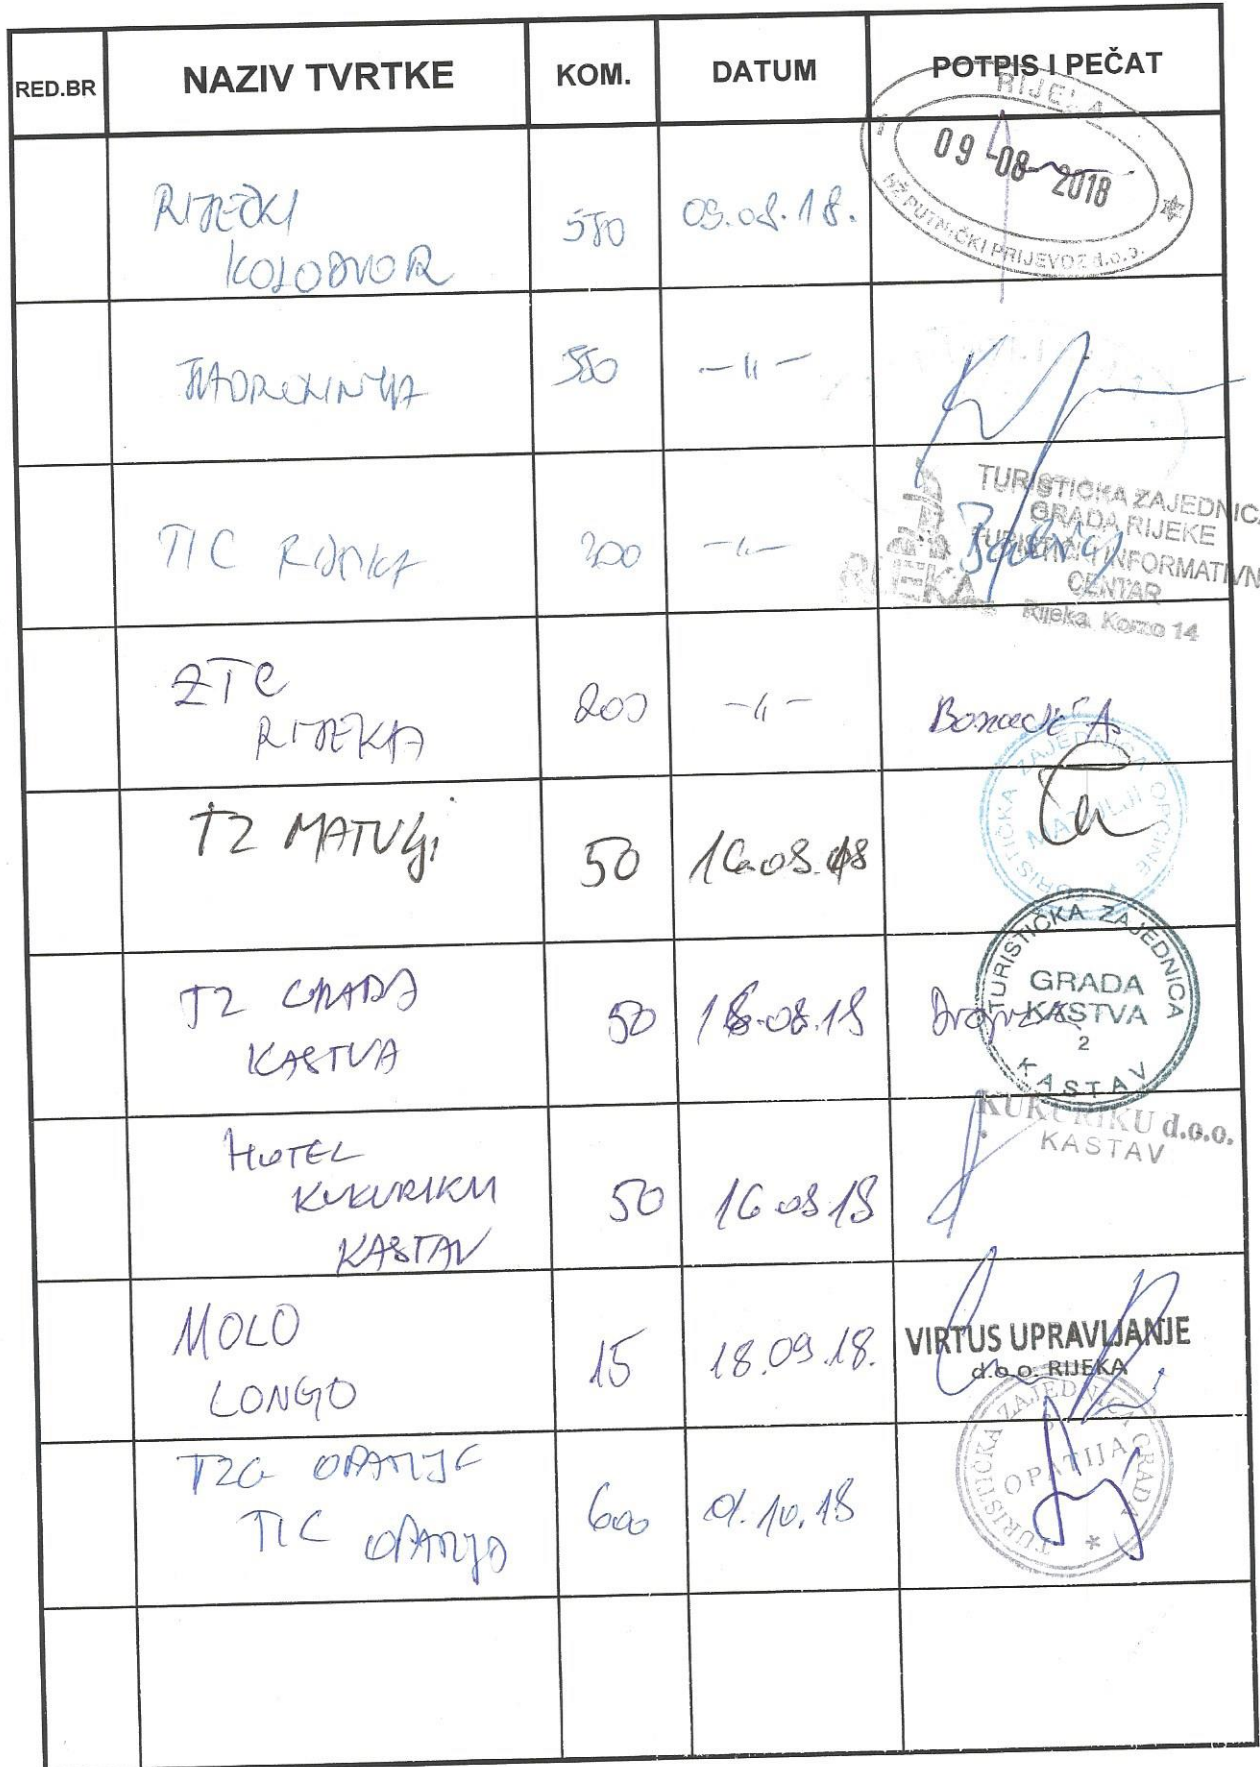 RED.BR NAZIV TVRTKE KOM. DATUM POTPIS I PEČAT
RIJEČKI
KOLODVOR
550 09.08.18.
RIJEKA
09-08-2018
HŽ PUTNIČKI PRIJEVOZ d.o.o.
JADROLINIJA 550 -11-
TIC RIJEKA 200 -11-
TURISTIČKA ZAJEDNICA
GRADA RIJEKE
TURISTIČKI INFORMATIVNI
CENTAR
RIJEKA
Rijeka, Korzo 14
ZTC
RIJEKA
200 -11-
TZ MATULJI 50 16.08.18
TURISTIČKA ZAJEDNICA OPĆINE
MATULJI
TZ GRADA
KASTVA
50 16.08.18
TURISTIČKA ZAJEDNICA
GRADA
KASTVA
2
KASTAV
HOTEL
KUKURIKU
KASTAV
50 16 08 18
KUKURIKU d.o.o.
KASTAV
MOLO
LONGO
15 18.09.18.
VIRTUS UPRAVLJANJE
d.o.o. RIJEKA
TZG OPATIJE
TIC OPATIJA
600 01.10.18
TURISTIČKA ZAJEDNICA GRADA
OPATIJA